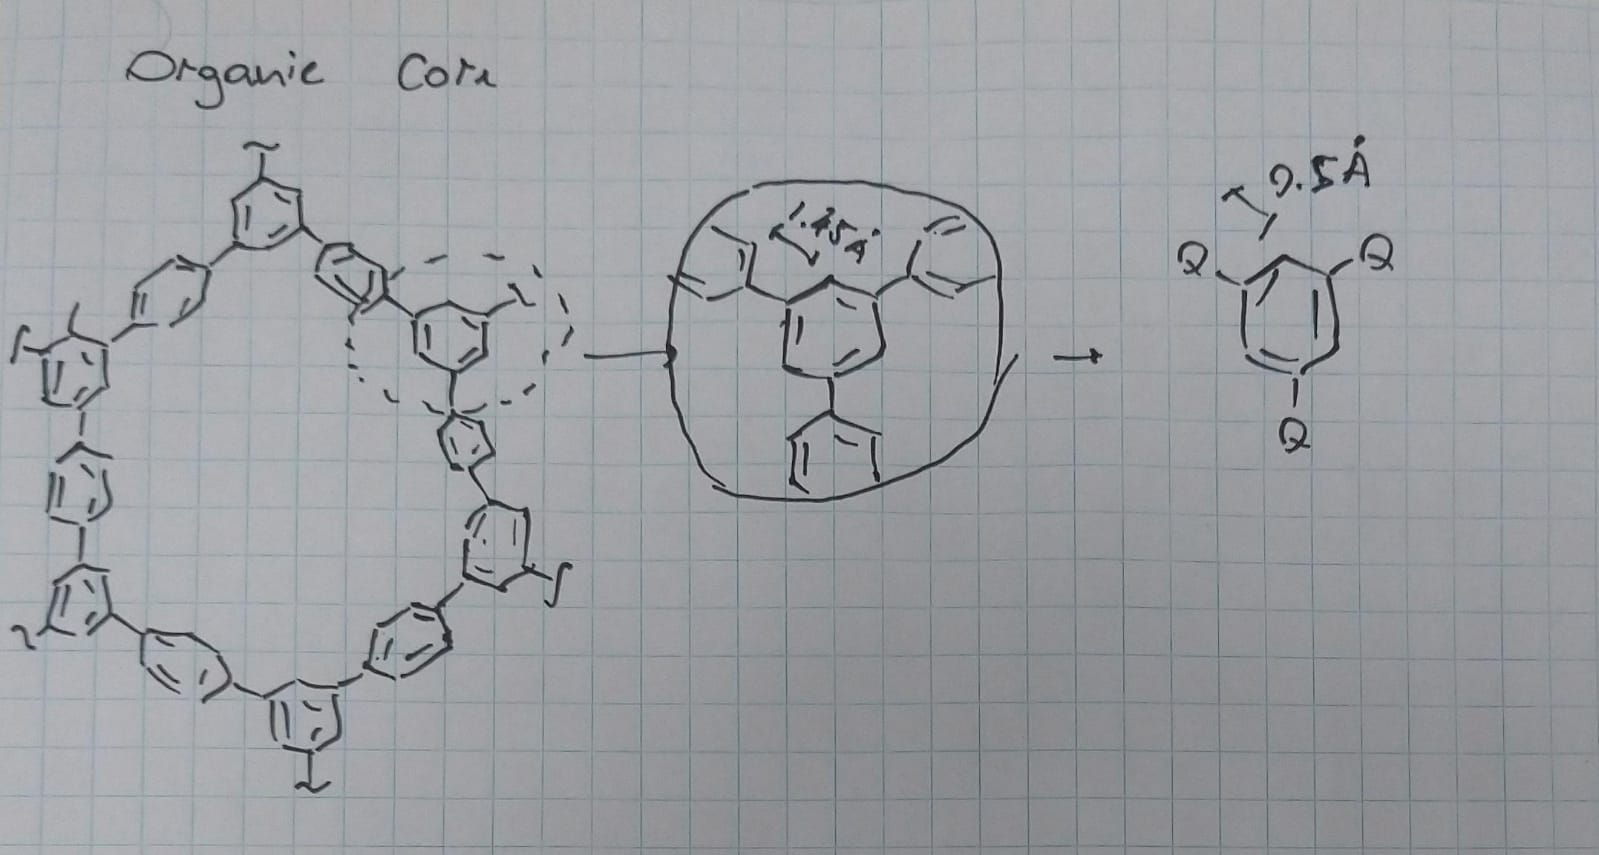 Organic Core
1.45Å
0.5Å
Q
Q
Q